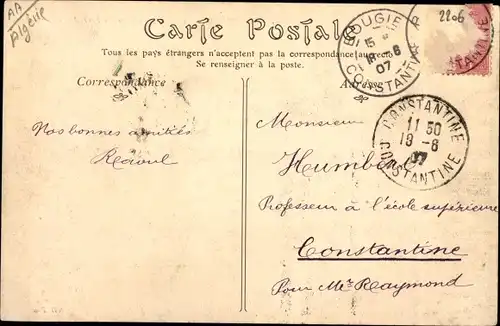 AA
Algérie
2206
Carte Postale
Tous les pays étrangers n'acceptent pas la correspondance au recto
Se renseigner à la poste.
BOUGIE
15
18-6
07
CONSTANTINE
CONSTANTINE
11 50
19-6
07
CONSTANTINE
Correspondance
Adresse
Nos bonnes amitiés
Raoul
Monsieur
Humbert
Professeur à l'école supérieure
Constantine
Pour Mr Raymond